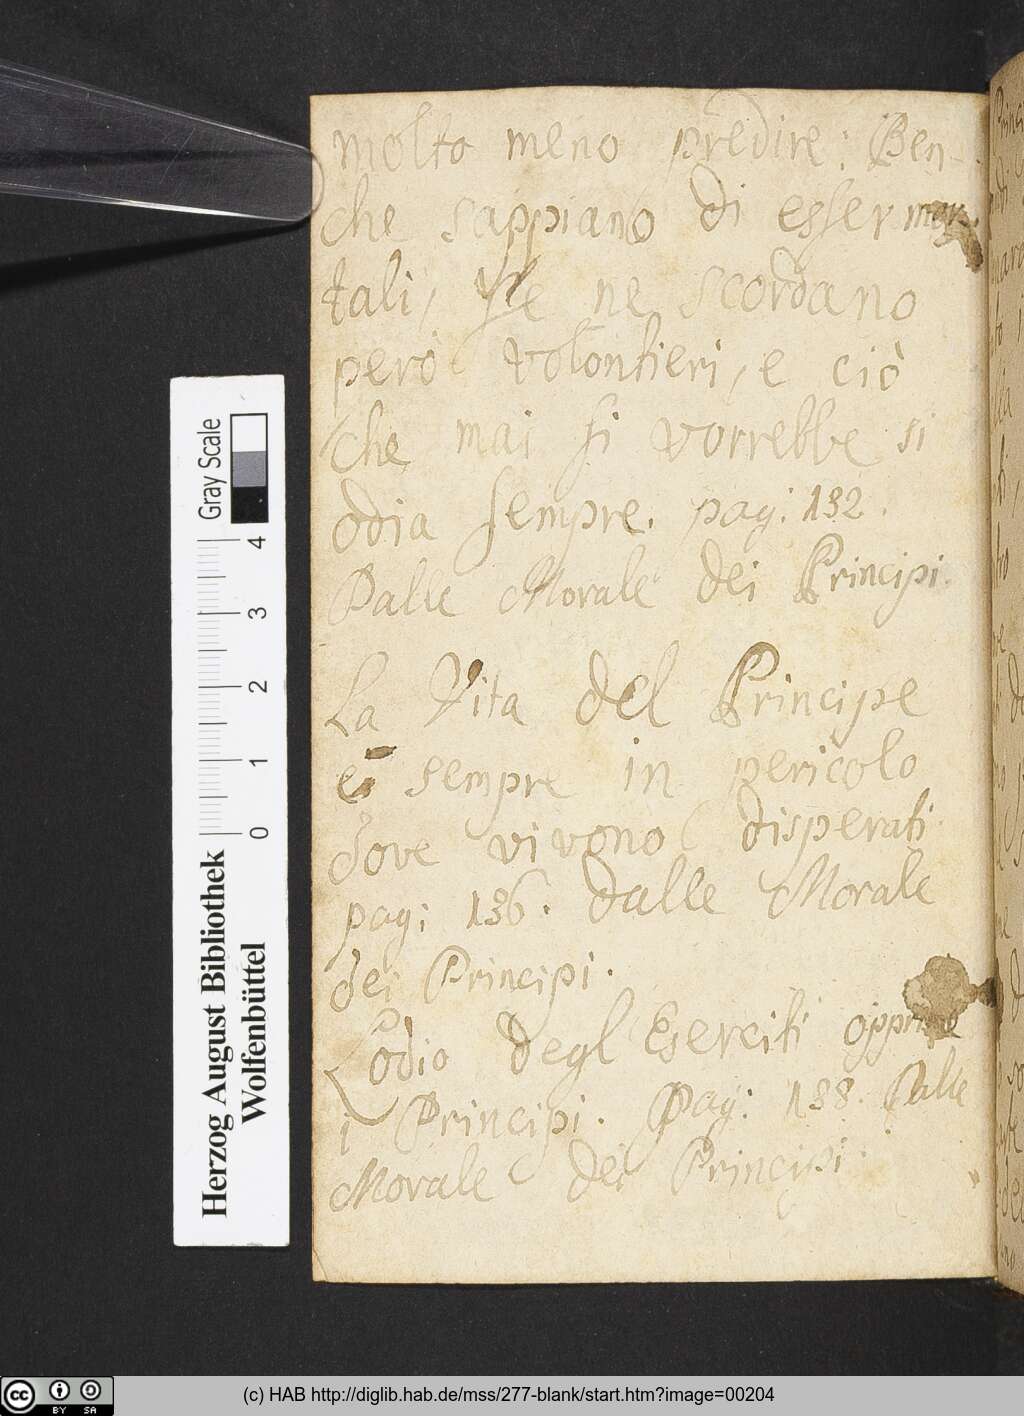 molto meno predire: Ben-
che sappiano di esser mor-
tali, se ne scordano
però volontieri, e ciò
che mai si vorrebbe si
odia sempre. pag: 132.
Dalle Morale dei Principi.
La Vita del Principe
è sempre in pericolo
dove vivono disperati
pag: 136. dalle Morale
dei Principi.
L'odio degl Eserciti opprime
i Principi. Pag: 138. Dalle
Morale dei Principi.
Gray Scale
0 1 2 3 4
Herzog August Bibliothek
Wolfenbüttel
(c) HAB http://diglib.hab.de/mss/277-blank/start.htm?image=00204
cc BY SA